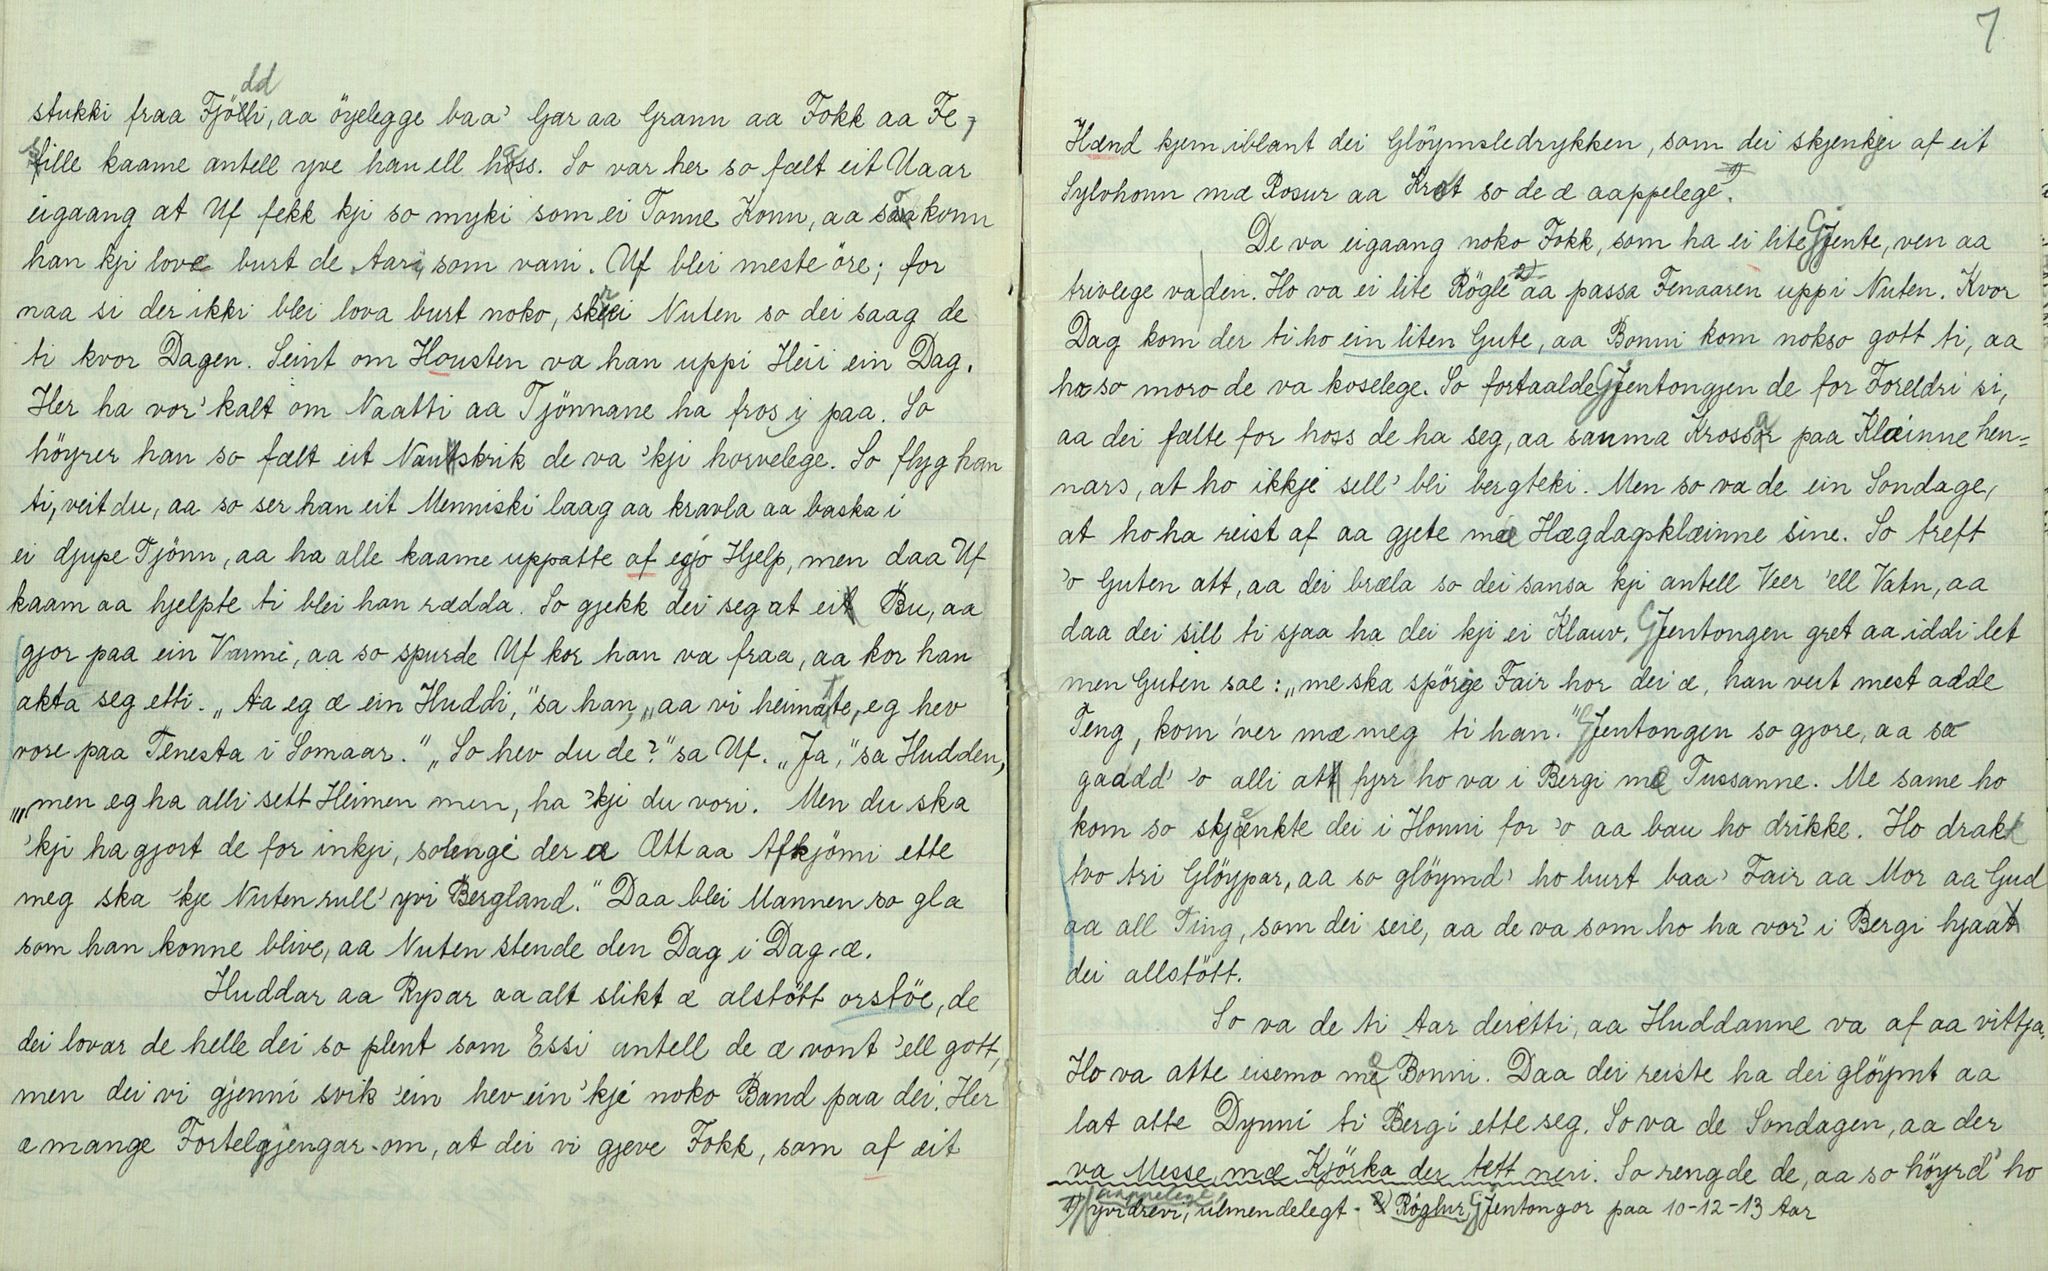 stukki fraa Fjöddi, aa öyelegge baa' Gar aa Grann aa Fokk aa Fe,
sille kaame antell yve han ell hoss. So var her so fælt eit Uaar
eigaang at Uf fekk kji so myki som ei Tonne Konn, aa so konn
han kji love burt de Aari, som vani. Uf blei meste öre; for
naa si der ikki blei lova burt noko, skrei Nuten so dei saag de
ti kvor Dagen. Seint om Housten va han uppi Heii ein Dag.
Her ha vor' kalt om Naatti aa Tjönnane ha frosi paa. So
höyrer han so fælt eit Nautskrik de va 'kji horvelege. So flyg han
ti, veit du, aa so ser han eit Menniski laag aa kravla aa baska i
ei djupe Tjönn, aa ha alle kaame uppatte af egjo Hjelp, men daa Uf
kaam aa hjelpte ti blei han rædda. So gjekk dei seg at ei Bu, aa
gjor paa ein Varme, aa so spurde Uf kor han va fraa, aa kor han
akta seg etti. „Aa eg æ ein Huddi," sa han, „aa vi heimatte, eg hev
vore paa Tenesta i Somaar." „So hev du de?" sa Uf. „Ja," sa Hudden,
„men eg ha alli sett Heimen men, ha 'kji du vori. Men du ska
'kji ha gjort de for inkji, solengi der æ Ætt aa Afkjömi ette
meg ska 'kje Nuten rull' yvi Bergland." Daa blei Mannen so gla
som han konne blive, aa Nuten stende den Dag i Dag æ.
Huddar aa Rypar aa alt slikt æ alstött orstöe, de
dei lovar de helle dei so plent som Essi antell de æ vont 'ell gott,
men dei vi gjenni svik 'ein hev ein 'kje noko Band paa dei. Her
æ mange Fortelgjengar om, at dei vi gjeve Fokk, som af eit
7
Hænd kjem iblant dei Glöymsledrykken, som dei skjenkjer af eit
Sylvhonn mæ Rosur aa Krot so de æ aappelege 1).
De va eigaang noko Fokk, som ha ei lite Gjente, ven aa
trivlege va den. Ho va ei lite Rögle 2) aa passa Fenaaren uppi Nuten. Kvor
Dag kom der ti ho ein liten Gute, aa Bonni kom nokso gott ti, aa
ha so moro de va koselege. So fortaalde Gjentongjen de for Foreldri si,
aa dei fælte for hoss de ha seg, aa sauma Krossar paa Klæinne hen=
nars, at ho ikkje sell' bli bergteki. Men so va de ein Sondage,
at ho ha reist af aa gjete mæ Hægdagsklæinne sine. So treft
'o Guten att, aa dei bræla so dei sansa kji antell Veer 'ell Vatn, aa
daa dei sill ti sjaa ha dei kji ei Klauv. Gjentongen gret aa iddi let
men Guten sae: „me ska spörje Fair hor dei æ, han veit mest adde
Teng, kom 'ver mæ meg ti han." Gjentongen so gjore, aa so
gaadd' 'o alli att fyrr ho va i Bergi mæ Tussanne. Me same ho
kom so skjenkte dei i Honni for 'o aa bau ho drikke. Ho drakk
tvo tri Glöypar, aa so glöymd' ho burt baa' Fair aa Mor aa Gud
aa all Ting, som dei seie, aa de va som ho ha vor' i Bergi hjaa
dei allstött.
So va de ti Aar deretti, aa Huddanne va af aa vittja.
Ho va atte eisemo me Bonni. Daa dei reiste ha dei glöymt aa
lat atte Dynni ti Bergi ette seg. So va de Sondagen, aa der
va Messe mæ Kjörka der tett neri. So rengde de, aa so höyrd' ho
1) aappelege yvidrevi, ulmendelegt - 2) Röglur, Gjentongor paa 10-12-13 Aar